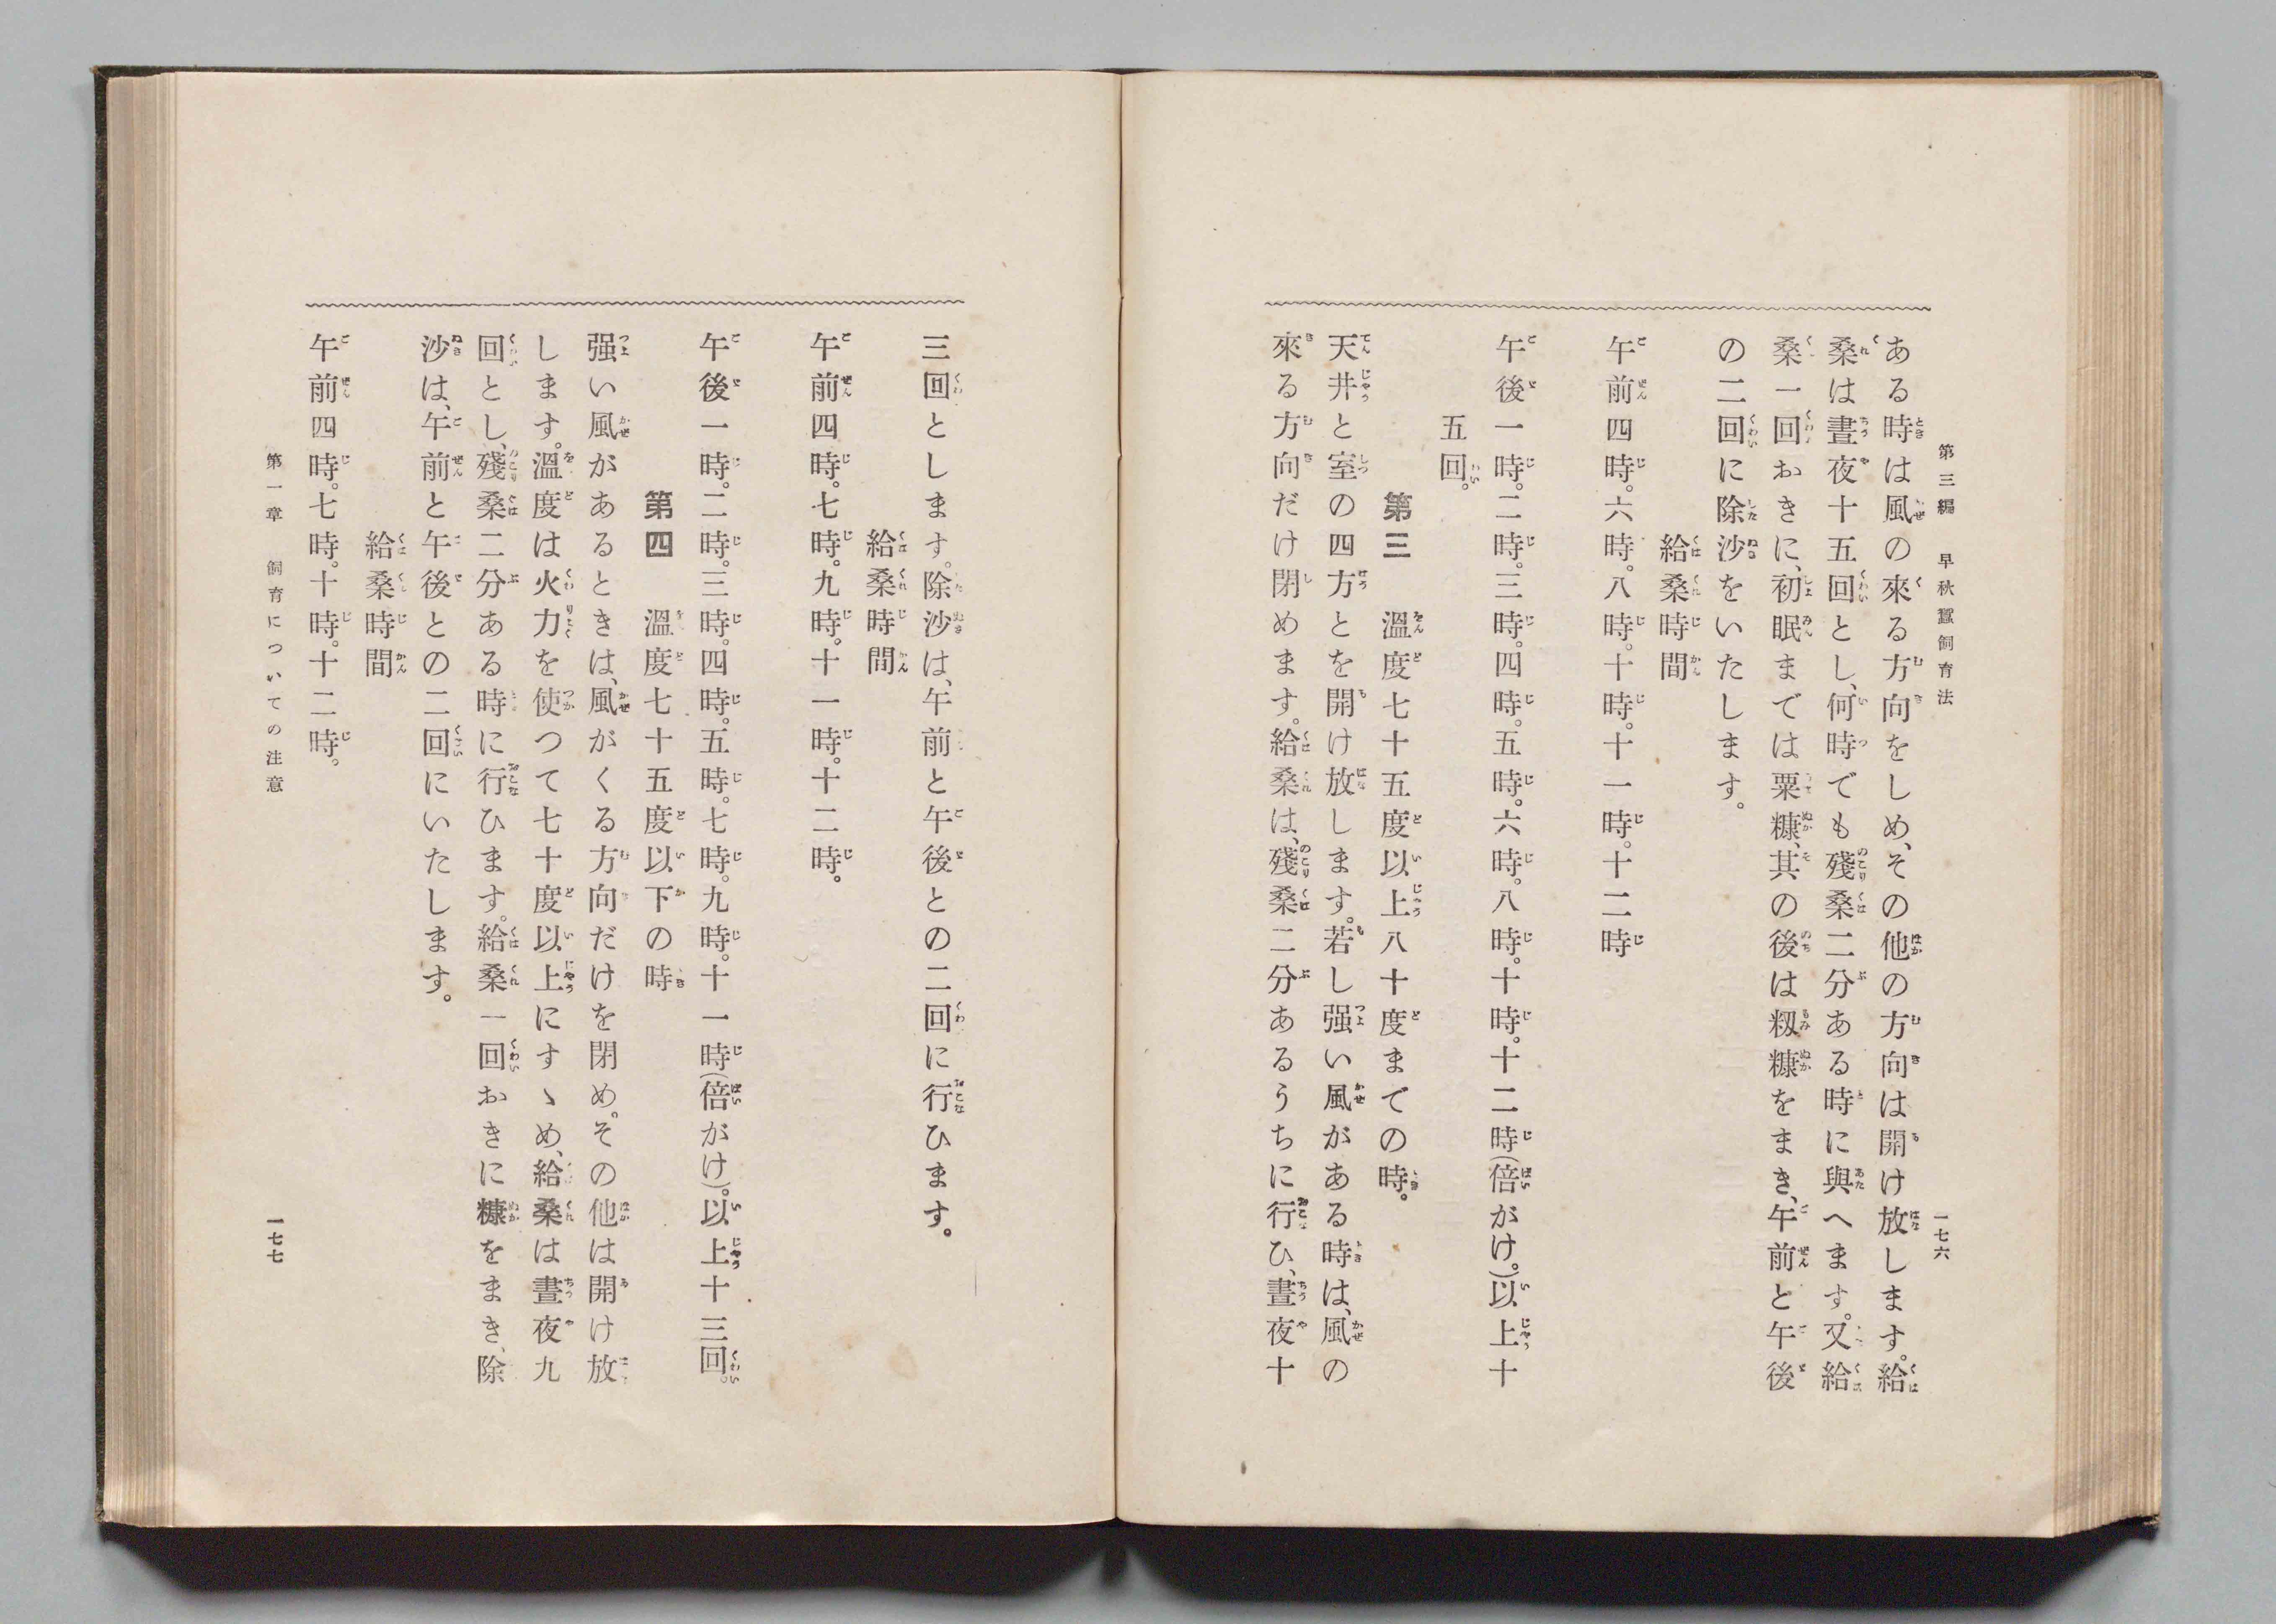 第三編　早秋蠶飼育法
一七六
ある時は風の來る方向をしめ、その他の方向は開け放します。給
桑は晝夜十五回とし、何時でも殘桑二分ある時に與へます。又給
桑一回おきに、初眠までは粟糠、其の後は籾糠をまき、午前と午後
の二回に除沙をいたします。
給桑時間
午前四時。六時。八時。十時。十一時。十二時
午後一時。二時。三時。四時。五時。六時。八時。十時。十二時(倍がけ。)以上十
五回。
第三　溫度七十五度以上八十度までの時。
天井と室の四方とを開け放します。若し强い風がある時は、風の
來る方向だけ閉めます。給桑は、殘桑二分あるうちに行ひ、晝夜十
三回とします。除沙は、午前と午後との二回に行ひます。
給桑時間
午前四時。七時。九時。十一時。十二時。
午後一時。二時。三時。四時。五時。七時。九時。十一時(倍がけ)。以上十三回。
第四　溫度七十五度以下の時
强い風があるときは、風がくる方向だけを閉め。その他は開け放
します。溫度は火力を使つて七十度以上にすゝめ、給桑は晝夜九
回とし、殘桑二分ある時に行ひます。給桑一回おきに糠をまき、除
沙は、午前と午後との二回にいたします。
給桑時間
午前四時。七時。十時。十二時。
第一章　飼育についての注意
一七七